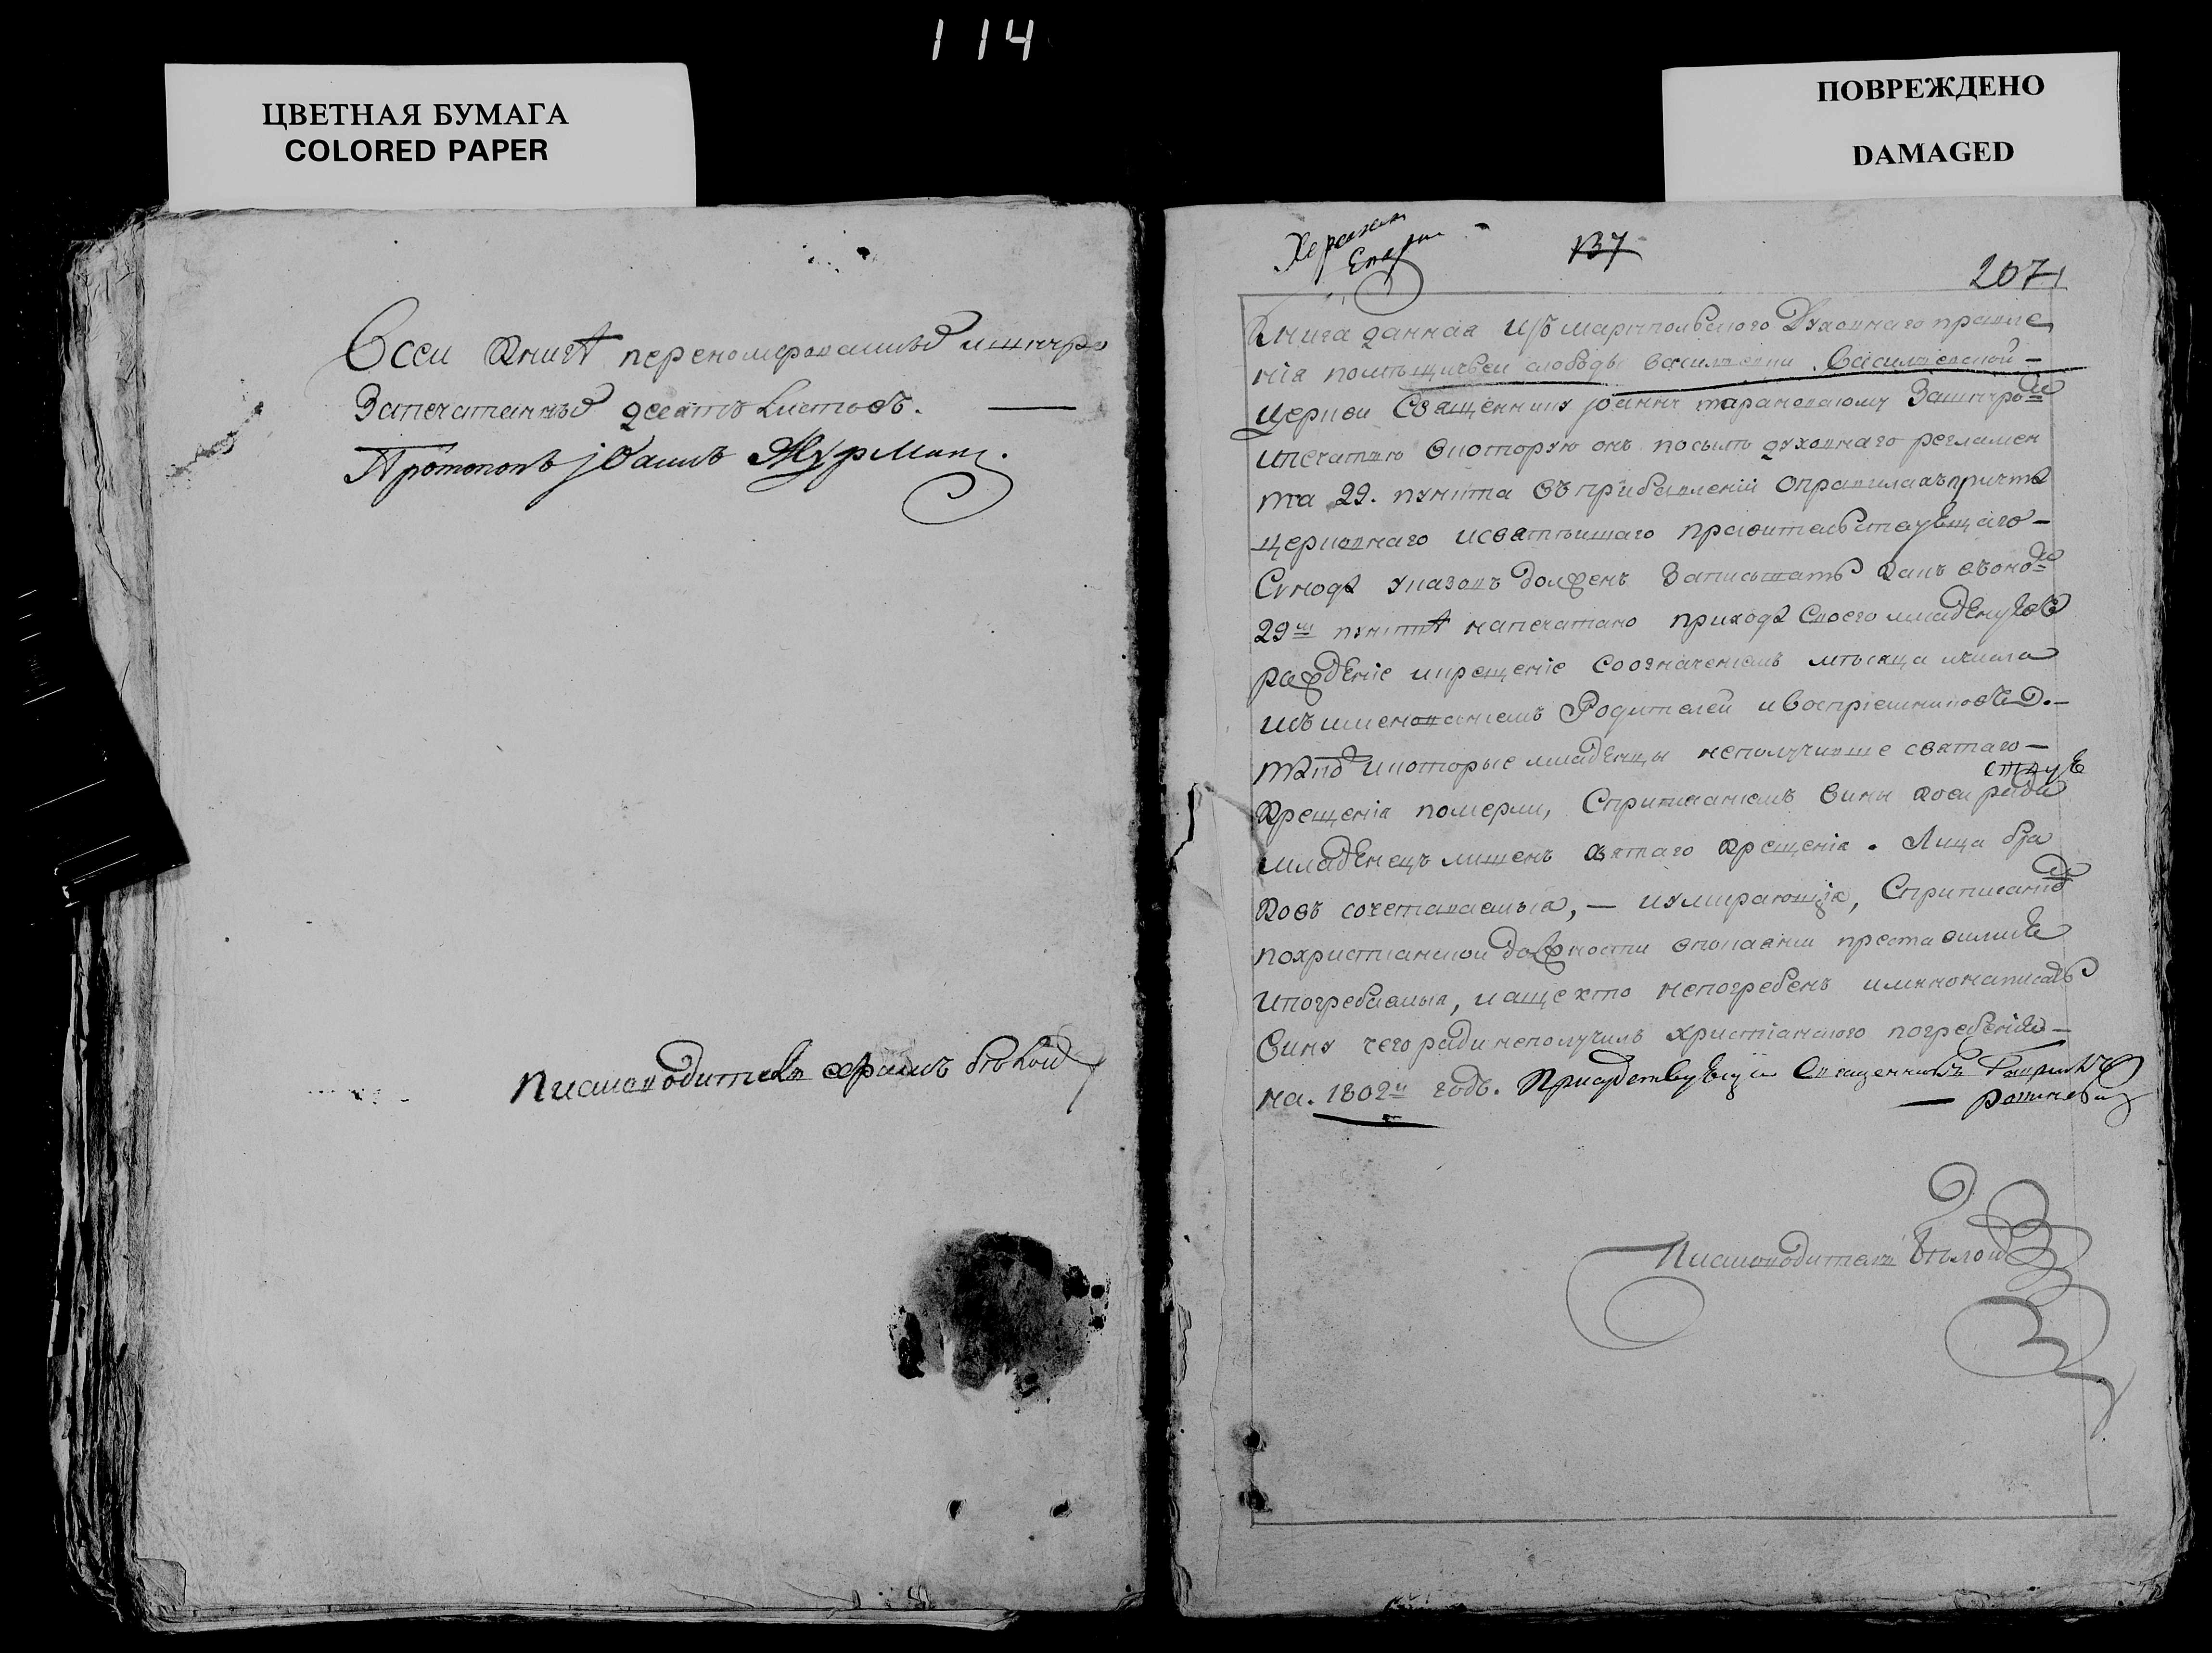 114
ЦВЕТНАЯ БУМАГА
COLORED PAPER
ПОВРЕЖДЕНО
DAMAGED
Всеи книги
Запечатанных десять листовъ. —
Протопопъ Іоаннъ
Писмоводитель
137
207
Книга данная изъ мариупольского Духовнаго правле
нія помѣщичьеи слободы василевки Василиевской –
церкви Священнику Іоанну тарановскому Зашнуро
ипечатью вкоторую онъ посылѣ духовнаго регламен
та 29. пункта въ прибавленіи оправилахъ причта
церковнаго исвятѣишаго правительствующаго –
Сунода указовъ долженъ Записывать какъ
29м пунктѣ напечатано приходѣ своего младенцовъ
рожденіе икрещеніе Соозначеніемъ мѣсяца ичисла
исъименованіемъ Родителей ивоспріемниковъ
икоторые младенцы неполучивше святаго –
крещенія померли, Сприписаніемъ вины коеи ради
младенецъ лишенъ святаго крещенія. Лица бра
ковъ сочетаваемыя, – иумирающія, Сприписаніе
похристіанскои должности
ипогребаемыя, иаще кто непогребенъ имянно написать
вину чего ради неполучилъ христіанского погребенія –
на. 1802й годъ. Присудствующій Священникъ
Писмоводитель Бѣлои